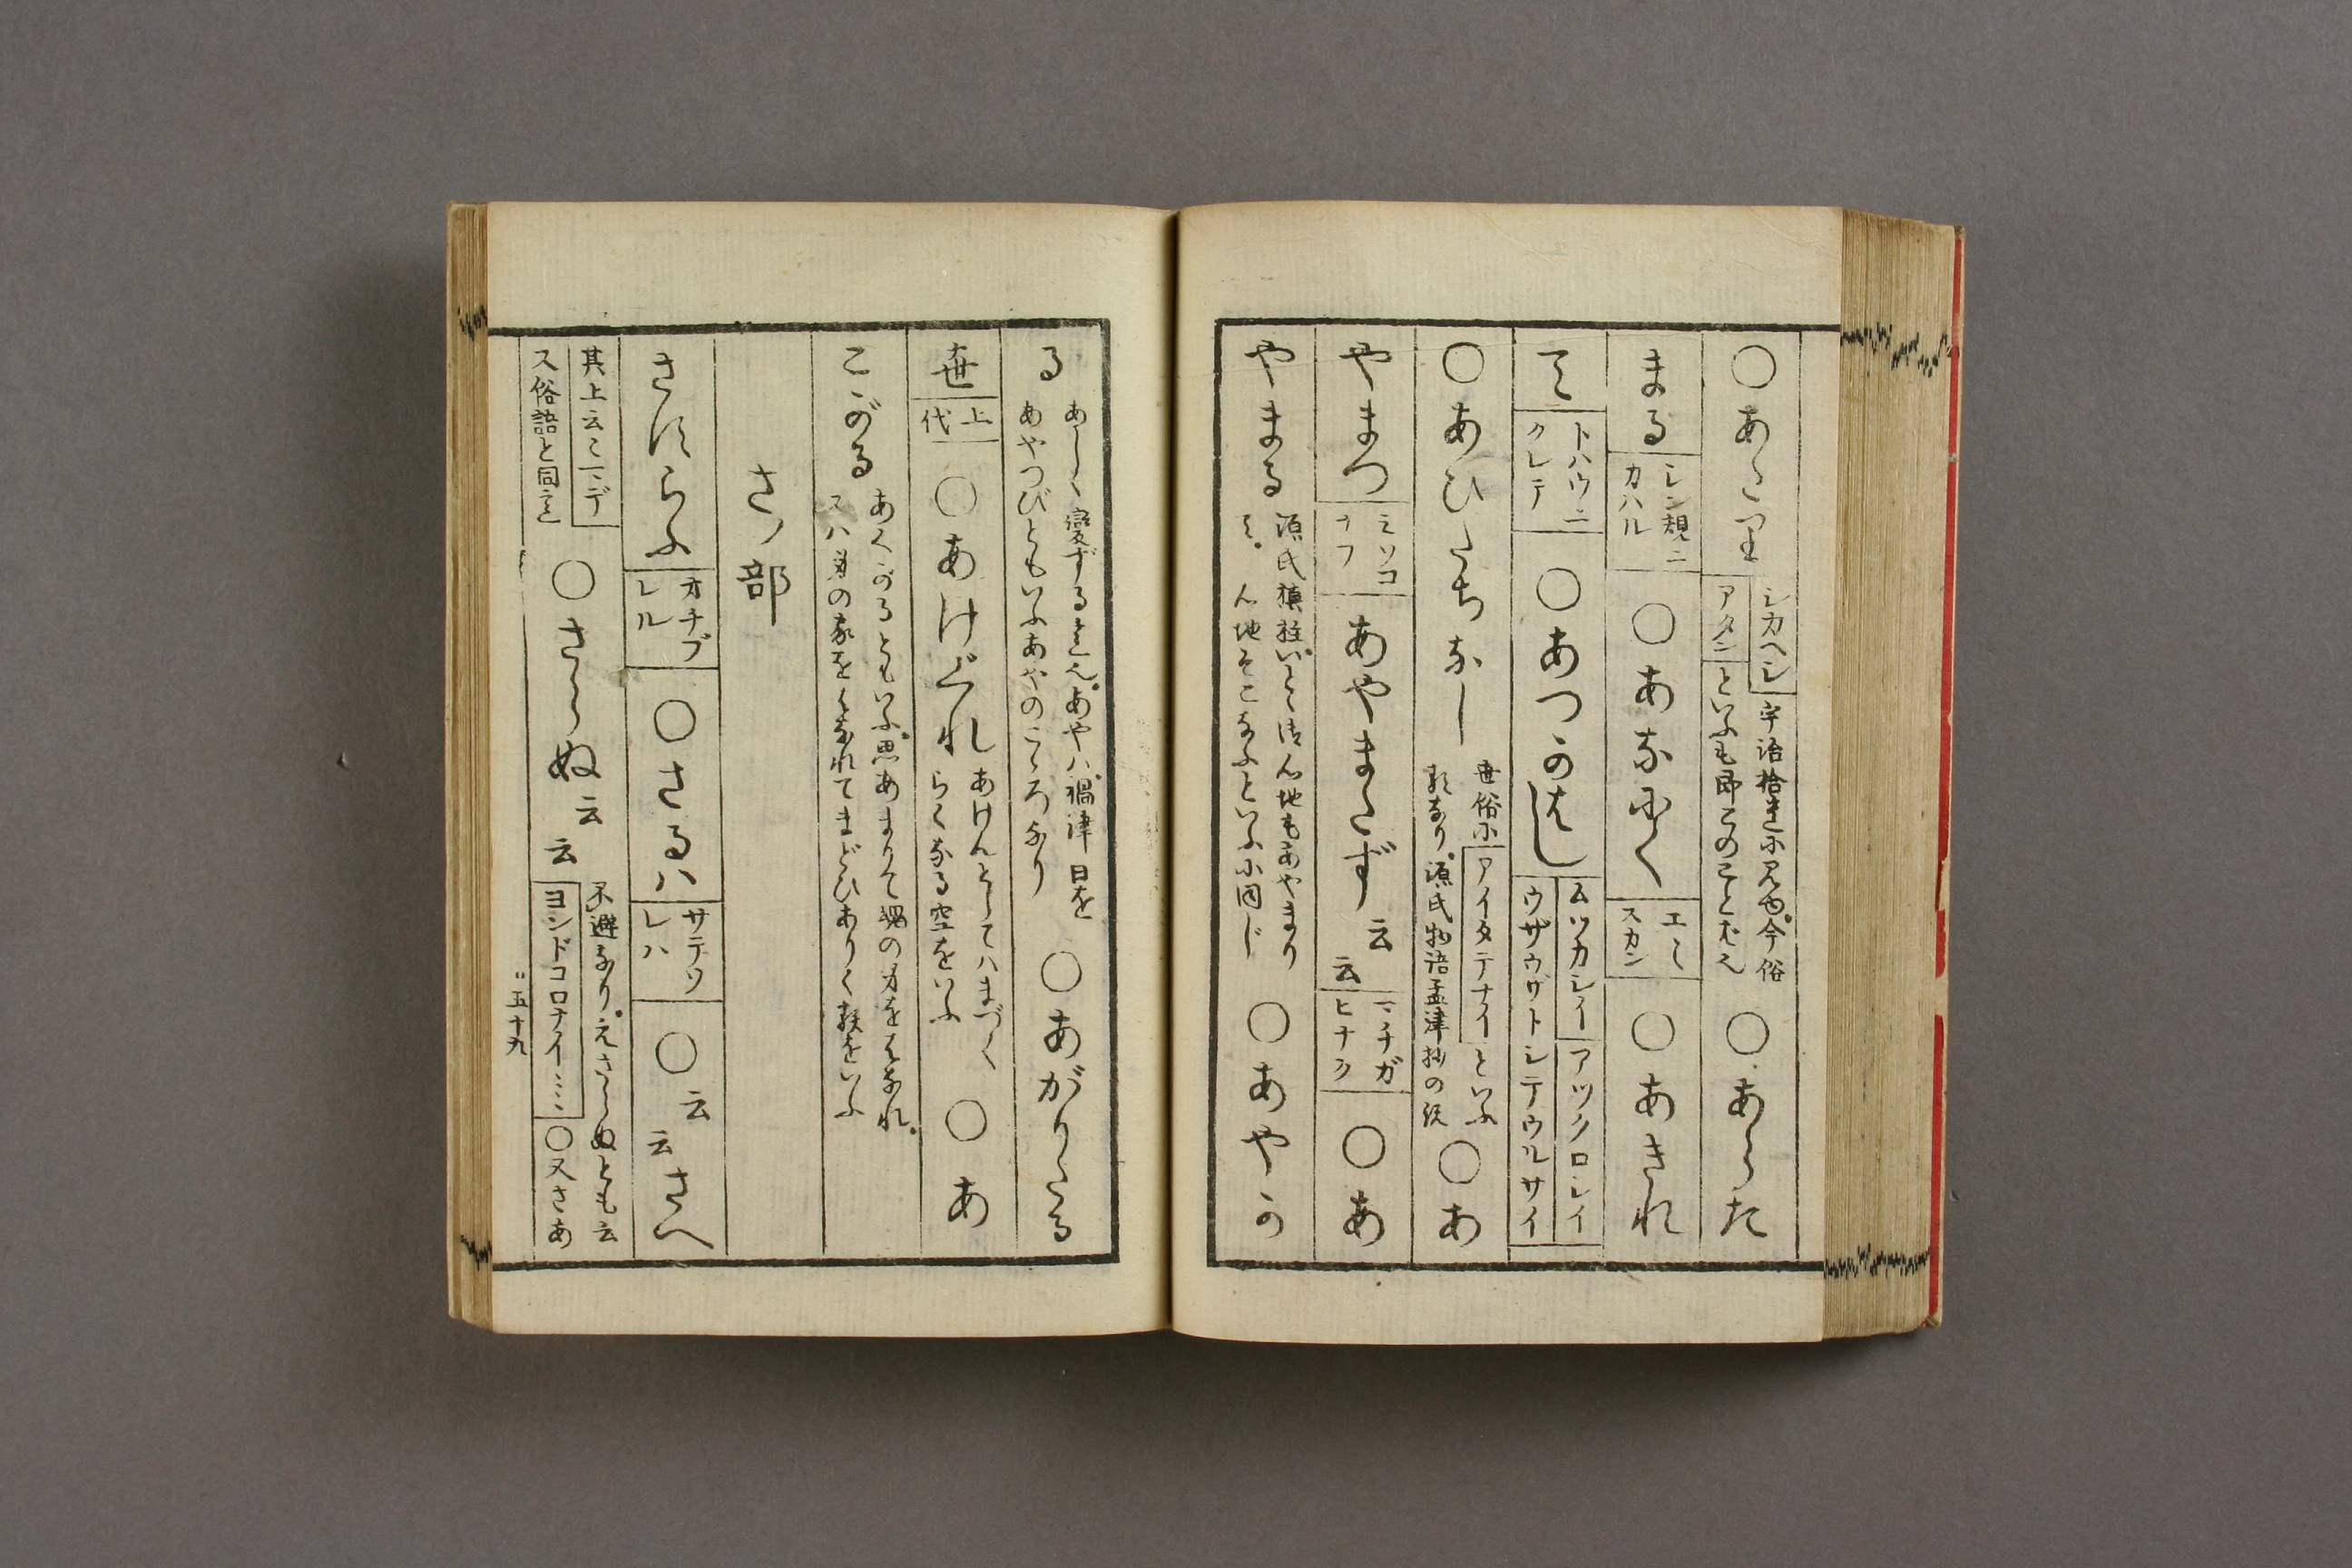 ○あたり シカヘシ アタン 宇治拾遺に見ゆ今俗 といふも即このことば也 ○あらた
まる シン規ニ カハル ○あなにく エヽ スカン ○あきれ
て トハウニ クレテ ○あつかはし ムツカシイ アツクロシイ ウザウザトシテウルサイ
○あひたちなし 世俗に アイタテナイ といふ 類なり源氏物語孟津抄の説 ○あ
やまつ ミソコ ナフ あやまたず云云 マチガ ヒナク ○あ
やまる 源氏槙柱いと 心地もあやまり 心地そこなふといふに同じ ○あやか
る あしく変ずるを云あやハ禍津日を あやつびともいふあやのこゝろなり ○あがりたる
世 上代 ○あけぐれ あけんとしてハまづく らくなる空をいふ ○あ
こがる あくがるともいふ思あまりて魂の身をはなれ 又ハ身の家をはなれてまどひありく類をいふ
さノ部
さすらふ オチブ レル ○さるハ サテソ レハ ○云云さへ
其上云云マデ 又俗語と同言 ○さらぬ云云 不避なりえさらぬとも云 ヨンドコロナイ… ○又さあ
五十九